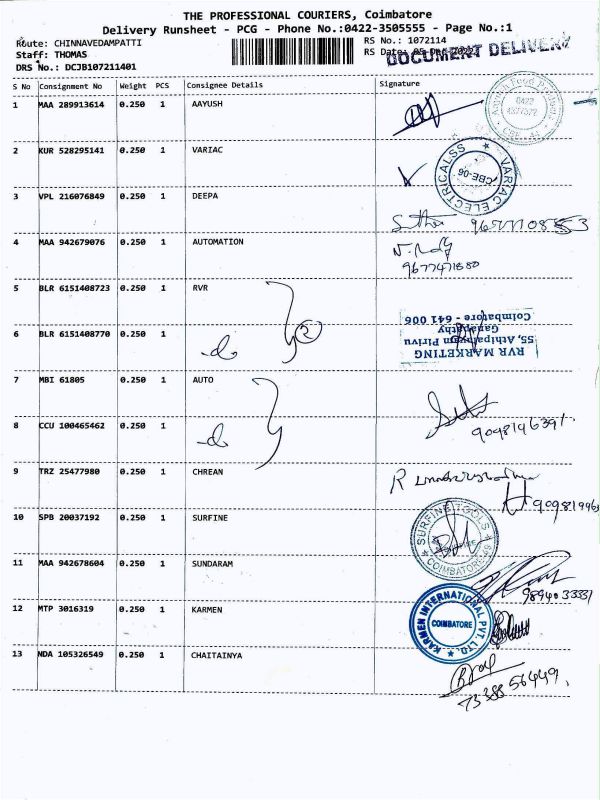 THE PROFESSIONAL COURIERS, Coimbatore
Delivery Runsheet - PCG - Phone No.:0422-3505555 - Page No.:1
Route: CHINNAVEDAMPATTI
RS No.: 1072114
Staff: THOMAS
RS Date:
DOCUMENT DELIVERY
DRS No.: DCJB107211401
S No Consignment No Weight PCS Consignee Details Signature
1 MAA 289913614 0.250 1 AAYUSH
0422
2 KUR 528295141 0.250 1 VARIAC
VARIAC ELECTRICALSS
CBE-06
3 VPL 216076849 0.250 1 DEEPA
4 MAA 942679076 0.250 1 AUTOMATION
9677471880
5 BLR 6151408723 0.250 1 RVR
2
RVR MARKETING
55, Athipalayam Pirivu
Ganapathy
Coimbatore - 641 006
6 BLR 6151408770 0.250 1
7 MBI 61805 0.250 1 AUTO
8 CCU 100465462 0.250 1
9098196391
9 TRZ 25477980 0.250 1 CHREAN
10 SPB 20037192 0.250 1 SURFINE
SURFINE TOOLS
COIMBATORE
11 MAA 942678604 0.250 1 SUNDARAM
12 MTP 3016319 0.250 1 KARMEN
KARMEN INTERNATIONAL PVT. LTD.
COIMBATORE
13 NDA 105326549 0.250 1 CHAITAINYA